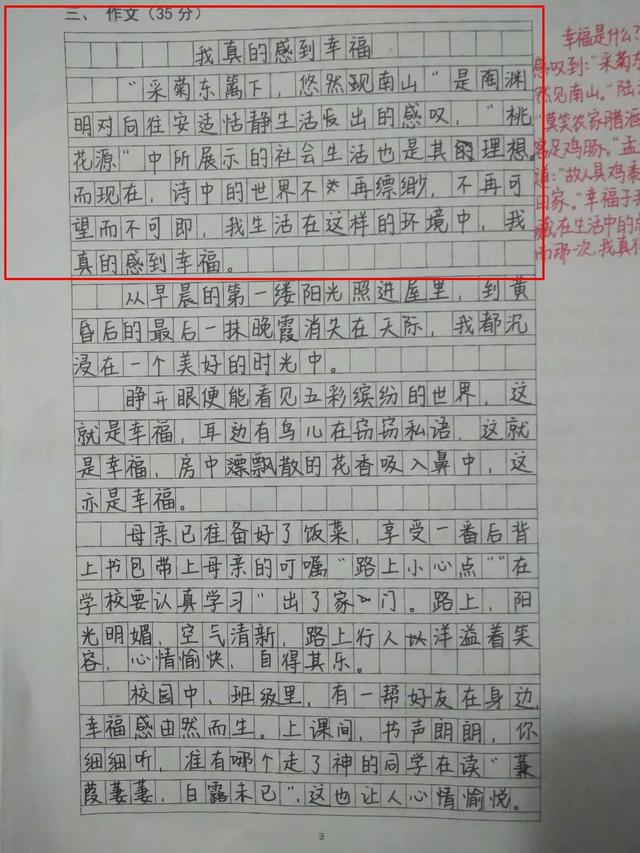 三、作文（35分）
我真的感到幸福
“采菊东篱下，悠然现南山”是陶渊
明对向往安适恬静生活发出的感叹，“桃
花源”中所展示的社会生活也是其的理想。
而现在，诗中的世界不再缥缈，不再可
望而不可即，我生活在这样的环境中，我
真的感到幸福。
从早晨的第一缕阳光照进屋里，到黄
昏后的最后一抹晚霞消失在天际，我都沉
浸在一个美好的时光中。
睁开眼便能看见五彩缤纷的世界，这
就是幸福，耳边有鸟儿在窃窃私语，这就
是幸福，房中飘散的花香吸入鼻中，这
亦是幸福。
母亲已准备好了饭菜，享受一番后背
上书包带上母亲的叮嘱“路上小心点”“在
学校要认真学习”出了家门。路上，阳
光明媚，空气清新，路上行人以洋溢着笑
容，心情愉快，自得其乐。
校园中，班级里，有一帮好友在身边，
幸福感由然而生。上课间，书声朗朗，你
细细听，准有哪个走了神的同学在读“蒹
葭萋萋，白露未已”，这也让人心情愉悦。
幸福是什么
感叹到：“采菊东
然见南山。”陆
“莫笑农家腊酒
客足鸡豚。”孟
道：“故人具鸡黍
田家。”幸福于我
藏在生活中的点
而那次，我真得
3